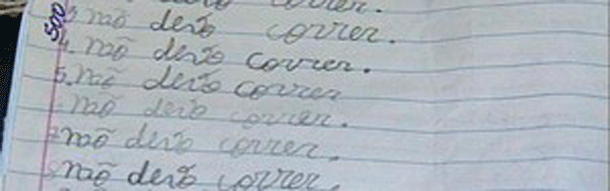 correr.
500
3 não devo correr.
4. não devo correr.
5. não devo correr
não devo correr.
7 não devo correr.
não devo correr.